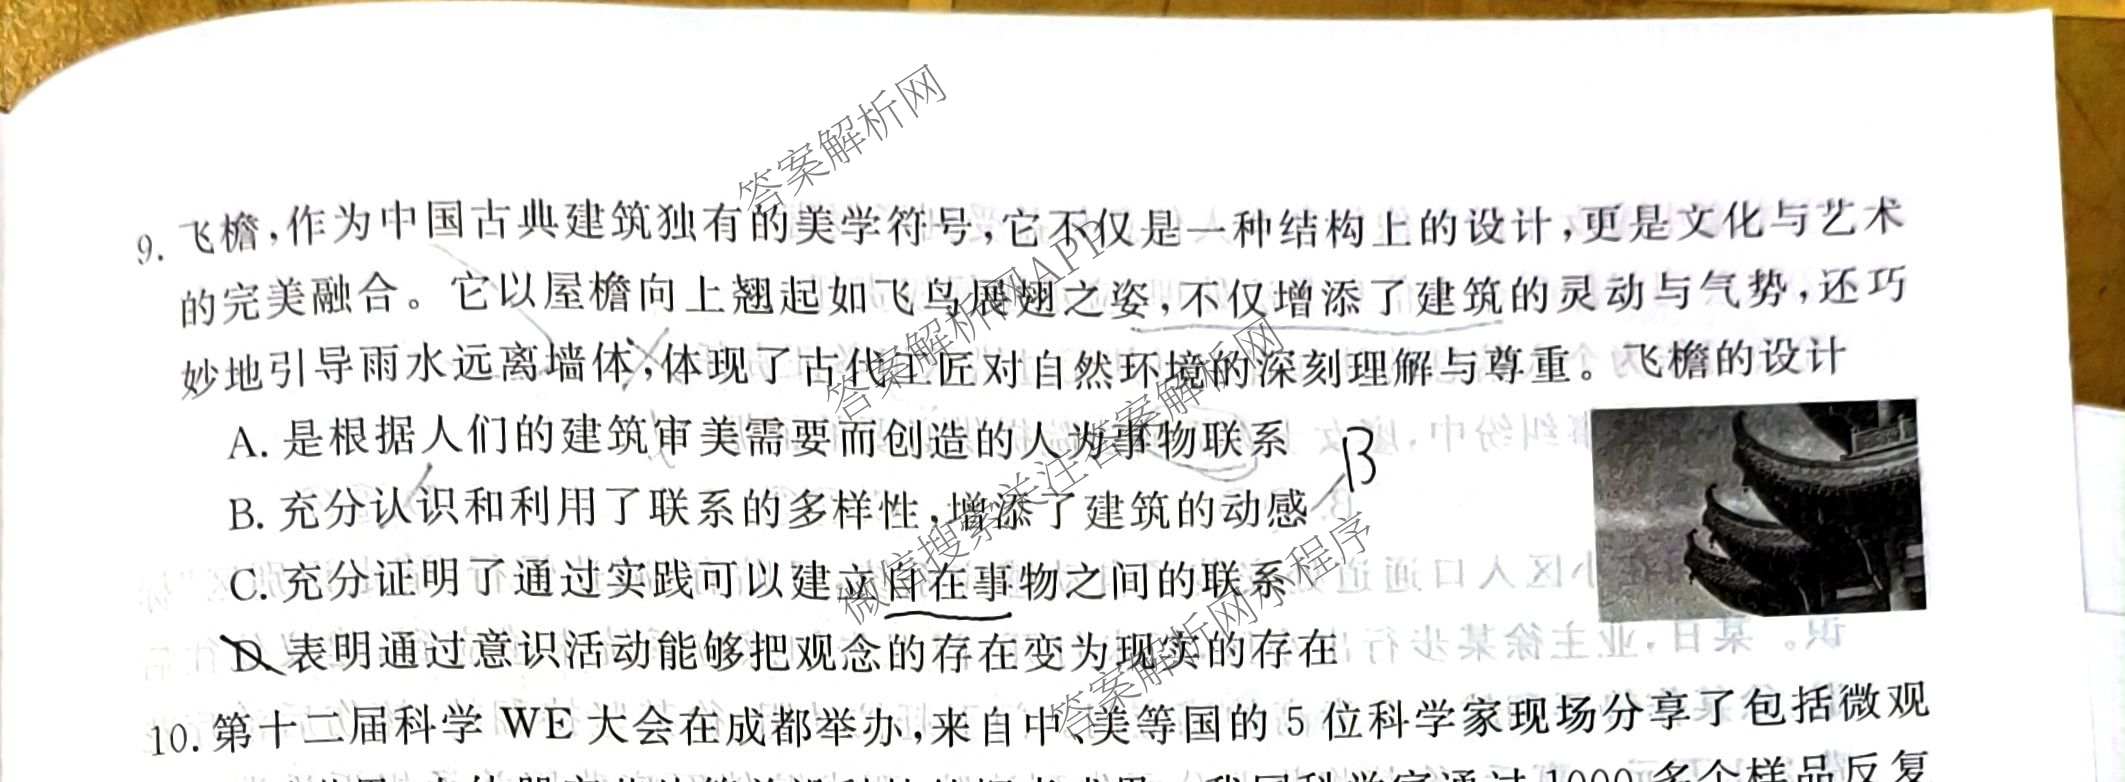 答案解析网
9. 飞檐,作为中国古典建筑独有的美学符号,它不仅是一种结构上的设计,更是文化与艺术
的完美融合。它以屋檐向上翘起如飞鸟展翅之姿,不仅增添了建筑的灵动与气势,还巧
妙地引导雨水远离墙体,体现了古代工匠对自然环境的深刻理解与尊重。飞檐的设计
答案解析网APP
A. 是根据人们的建筑审美需要而创造的人为事物联系
B. 充分认识和利用了联系的多样性,增添了建筑的动感
B
C. 充分证明了通过实践可以建立自在事物之间的联系
微信搜索关注答案解析网
D. 表明通过意识活动能够把观念的存在变为现实的存在
答案解析网小程序
10. 第十二届科学 WE 大会在成都举办,来自中、美等国的 5 位科学家现场分享了包括微观